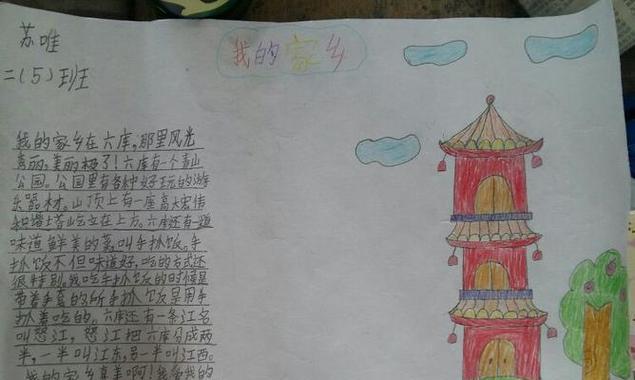 苏唯
二(5)班
我的家乡
我的家乡在六库,那里风光
秀丽,美丽极了!六库有一个青山
公园。公园里有各种好玩的游
乐器材。山顶上有一座高大宏伟
的塔士苫屹立在上方。六库还有一道
味道鲜美的菜叫手扒饭。手
扒饭不但味道好,吃的方式还
很特别。我吃手扒饭的时候是
带着手套的所手扒饭是用手
扒着吃的。六库还有一条江名
叫怒江,怒江把六库分成两
半,一半叫江东,另一半叫江西。
我的家乡真美啊!我爱我的